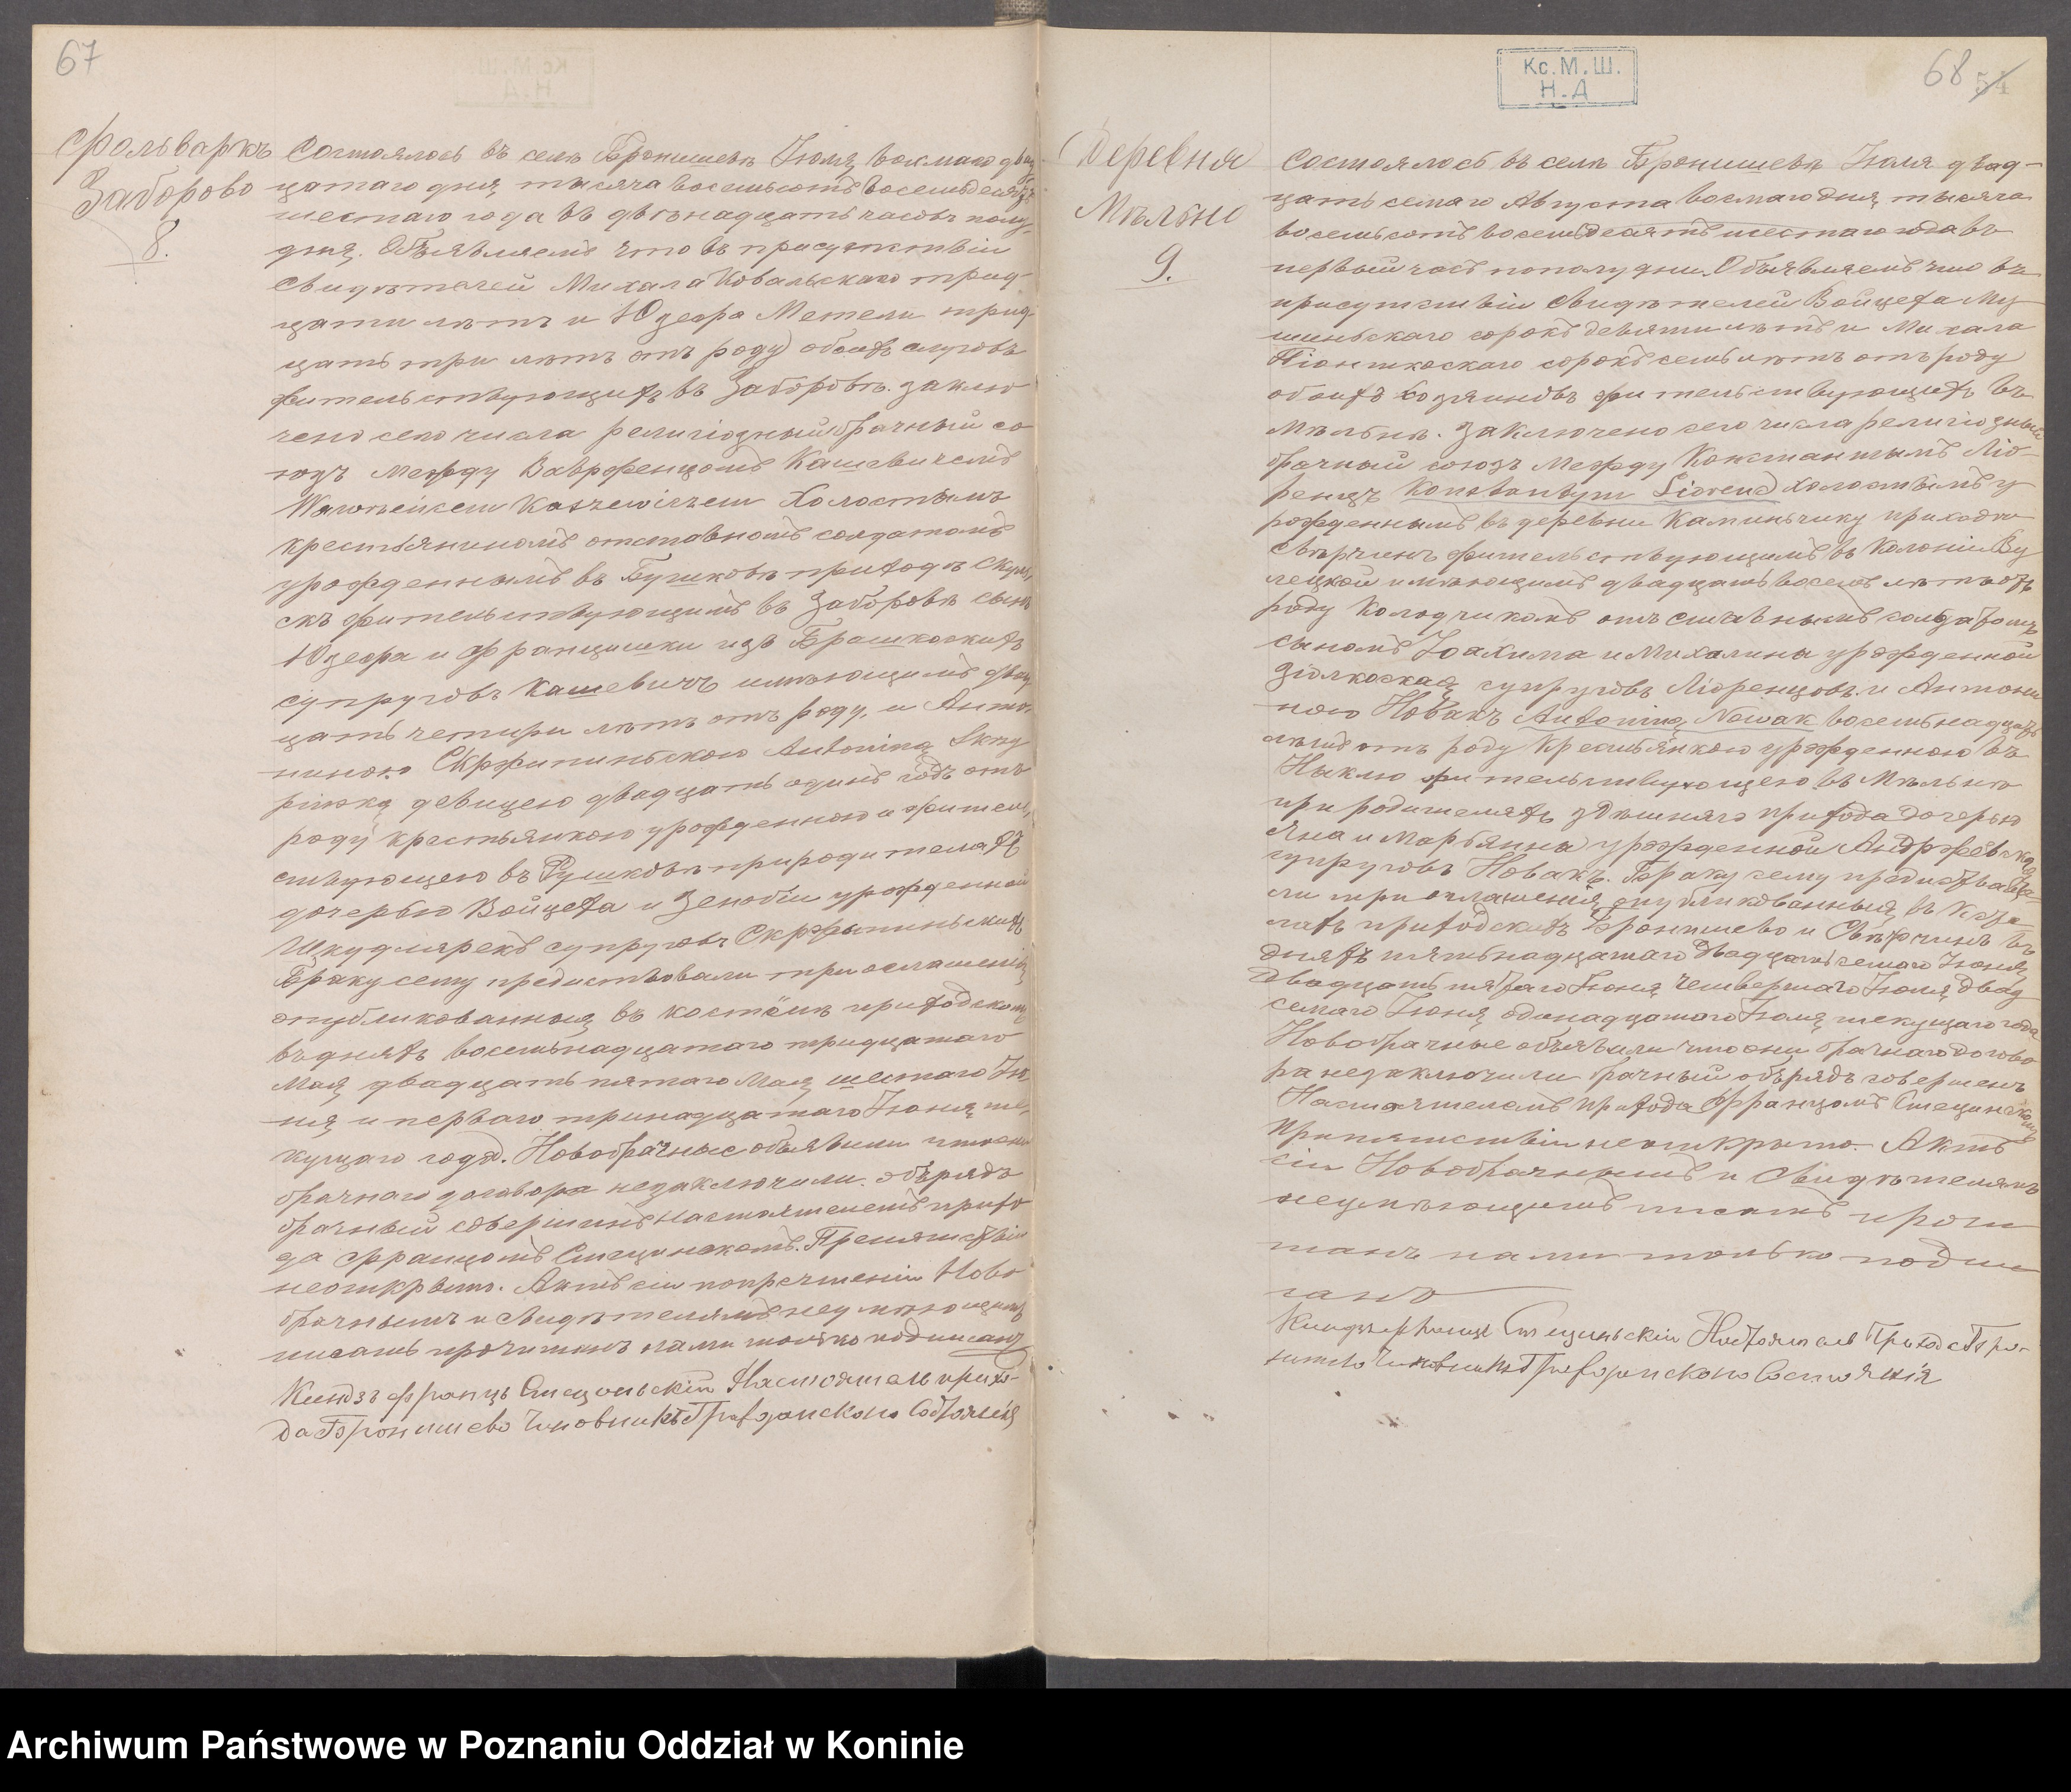 67
Фольваркъ
Заборово
8.
Состоялось въ селѣ Бронишевѣ Іюля восмаго двад
цатаго дня тысяча восемьсотъ восемьдесятъ
шестаго года въ двѣнадцать часовъ полу-
дня. Объявляемъ что въ присутствіи
свидѣтелей Михала Ковальскаго трид-
цати лѣтъ и Юзефа Метели трид-
цать три лѣтъ отъ роду обоихъ слуговъ
жительствующихъ въ Заборовѣ. заклю
чено сего числа религіозный брачный со
юзъ между Ваврженцомъ Кашевичемъ
Wawrzeńcem Kaszewiczem Холостымъ
крестьяниномъ отставномъ солдатомъ
урожденнымъ въ Бушковѣ приходѣ Скуль
скъ жительствующимъ въ Заборовѣ сынъ
Юзефа и Францишки изъ Брашкоскихъ
супруговъ Кашевичъ имѣющимъ двад
цать четыри лѣтъ отъ роду, и Анто
ниною Скржипиньскою Antoniną Skrzy
pińską девицею двадцать одинъ годъ отъ
роду крестьянкою урожденною и жители,
ствующею въ Рушковѣ при родителахъ
дочерью Войцеха и Зенобіи урожденной
Шкудлярекъ супруговъ Скржыпиньскихъ
Браку сему предиствовали три оглашенія
опубликованныя въ костёлѣ приходскомъ
въ дняхъ восемьнадцатаго тридцатаго
Мая двадцать пятаго Мая шестаго Ію
ня и перваго тринадцатаго Іюня те-
кущаго года. Новобрачные объявили что они
брачнаго договора незаключили. обърядъ
брачный совершинъ настоятелемъ прихо
да Францомъ Стецинскемъ. Препятствіи
неоткрыто. Актъ сіи попречтеніи Ново
брачнымъ и свидѣтелямъ неумѣющимъ
писать прочитанъ нами только подписанъ
Ксиндзъ Францъ Стециньскій Настоятель прихо-
да Бронишево Чиновникъ Гражданскаго Состоянія
Кс. М. Ш.
Н. Д
68 54
Деревня
Мѣльно
9.
Состоялось въ селѣ Бронишевѣ Іюля двад-
цать семаго Августа восмаго дня тысяча
восемьсотъ восемьдесятъ шестаго года въ
первый часъ пополудни. Объявляемъ что въ
присутствіи свидѣтелей Войцеха Му
шиньскаго сорокъ девяти лѣтъ и Михала
Піонткоскаго сорокъ семь лѣтъ отъ роду
обоихъ хозяиновъ жительствующихъ въ
Мѣльнѣ. заключено сего числа религіозный
брачный союзъ между Константымъ Ліо-
ренцъ Konstantym Liorenc холостымъ у
рожденнымъ въ деревни Каминьчику прихода
Свѣрчинъ жительствующимъ въ Колоніи Ву
лецкой имѣющимъ двадцать восемь лѣтъ отъ
роду Колодчикомъ отъ ставнымъ солдатомъ
сыномъ Іоахима и Михалины урожденной
Зіолкоская супруговъ Ліоренцовъ и Антони
ною Новакъ Antoniną Nowak восемьнадцать
лѣтъ отъ роду крестьянкою урожденною въ
Ныклю жительствующею въ Мѣльнѣ
при родителяхъ здѣшняго прихода дочерью
Яна и Марьянны урожденной Анджеевска
супруговъ Новакъ. Браку сему предиствова
ли три оглашенія опубликованныя въ косте
лахъ приходскахъ Бронишево и Свѣрчинъ въ
дняхъ пятьнадцатаго двадцать семаго Іюня
двадцать пятаго Іюня четвертаго Іюля двад
семаго Іюня одинадцатаго Іюля текущаго года
Новобрачные объявили что они брачнаго догово
ра незаключили брачный обърядъ совершенъ
Настоятелемъ прихода Францомъ Стецинскомъ
Препятствіи неоткрыто. Актъ
сіи Новобрачнымъ и Свидѣтелямъ
неумѣющимъ писать прочи
танъ нами только подпи
сано
Ксиндзъ Францъ Стециньскій Настоятель Прихода Бро-
нишево Чиновникъ Гражданскаго Состоянія
Archiwum Państwowe w Poznaniu Oddział w Koninie